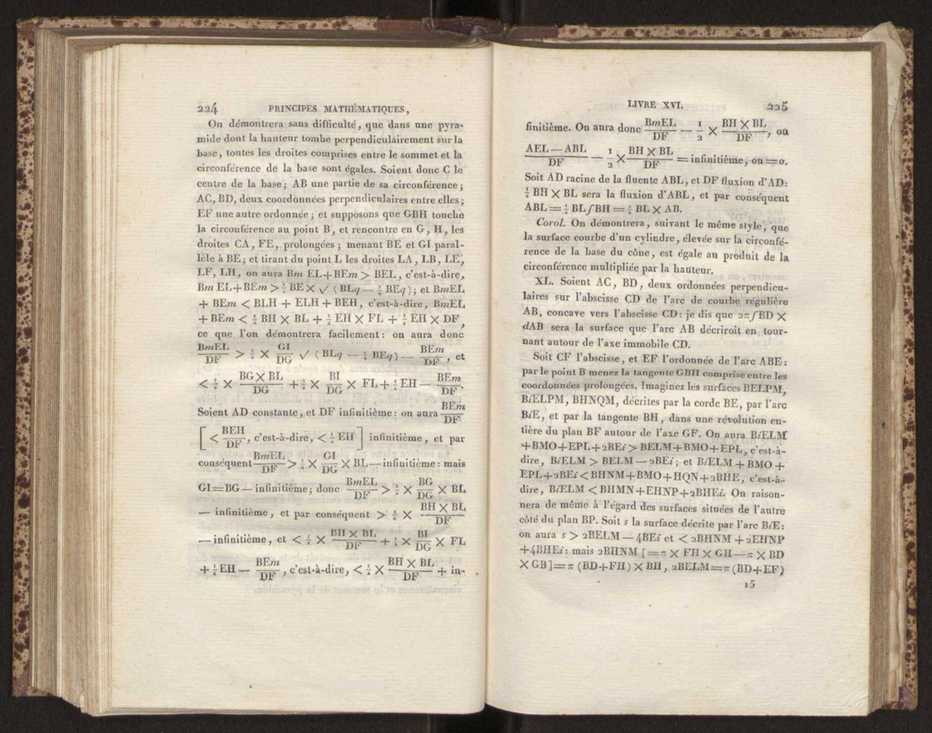 224 PRINCIPES MATHÉMATIQUES,
On démontrera sans difficulté, que dans une pyra-
mide dont la hauteur tombe perpendiculairement sur la
base, toutes les droites comprises entre le sommet et la
circonférence de la base sont égales. Soient donc C le
centre de la base; AB une partie de sa circonférence;
AC, BD, deux coordonnées perpendiculaires entre elles;
EF une autre ordonnée; et supposons que GBH touche
la circonférence au point B, et rencontre en G, H, les
droites CA, FE, prolongées; menant BE et GI paral-
lèle à BE; et tirant du point L les droites LA, LB, LE,
LF, LH, on aura Bm EL+BEm > BEL, c'est-à-dire,
Bm EL+BEm > ½ BE × √ (BLq — ¼ BEq); et BmEL
+ BEm < BLH + ELH + BEH, c'est-à-dire, BmEL
+ BEm < ½ BH × BL + ½ EH × FL + ½ EH × DF,
ce que l'on démontrera facilement: on aura donc
BmEL/DF > ½ × GI/DG √ (BLq — ¼ BEq) — BEm/DF, et
< ½ × BG × BL/DG + ½ × BI/DG × FL + ½ EH — BEm/DF.
Soient AD constante, et DF infinitième: on aura BEm/DF
[< BEH/DF, c'est-à-dire, < ½ EH] infinitième, et par
conséquent BmEL/DF > ½ × GI/DG × BL — infinitième: mais
GI=BG — infinitième; donc BmEL/DF > ½ × BG/DG × BL
— infinitième, et par conséquent > ½ × BH × BL/DF
— infinitième, et < ½ × BH × BL/DF + ½ × BI/DG × FL
+ ½ EH — BEm/DF, c'est-à-dire, < ½ × BH × BL/DF + in-
LIVRE XVI. 225
finitième. On aura donc BmEL/DF — 1/2 × BH × BL/DF, ou
AEL — ABL/DF — 1/2 × BH × BL/DF = infinitième, ou = 0.
Soit AD racine de la fluente ABL, et DF fluxion d'AD:
½ BH × BL sera la fluxion d'ABL, et par conséquent
ABL = ½ BL ∫ BH = ½ BL × AB.
Corol. On démontrera, suivant le même style, que
la surface courbe d'un cylindre, élevée sur la circonfé-
rence de la base du cône, est égale au produit de la
circonférence multipliée par la hauteur.
XL. Soient AC, BD, deux ordonnées perpendicu-
laires sur l'abscisse CD de l'arc de courbe régulière
AB, concave vers l'abscisse CD: je dis que 2π∫BD ×
dAB sera la surface que l'arc AB décriroit en tour-
nant autour de l'axe immobile CD.
Soit CF l'abscisse, et EF l'ordonnée de l'arc ABE:
par le point B menez la tangente GBH comprise entre les
coordonnées prolongées. Imaginez les surfaces BELPM,
BiELPM, BHNQM, décrites par la corde BE, par l'arc
BiE, et par la tangente BH, dans une révolution en-
tière du plan BF autour de l'axe GF. On aura BiELM
+BMO+EPL+2BEi > BELM+BMO+EPL, c'est-à-
dire, BiELM > BELM — 2BEi; et BiELM + BMO +
EPL+2BEi < BHNM+BMO+HQN+2BHE, c'est-à-
dire, BiELM < BHMN+EHNP+2BHEi. On raison-
nera de même à l'égard des surfaces situées de l'autre
côté du plan BP. Soit s la surface décrite par l'arc BiE:
on aura s > 2BELM — 4BEi et < 2BHNM + 2EHNP
+4BHEi: mais 2BHNM [= π × FH × GH — π × BD
× GB] = π (BD+FH) × BH, 2BELM = π (BD+EF)
15